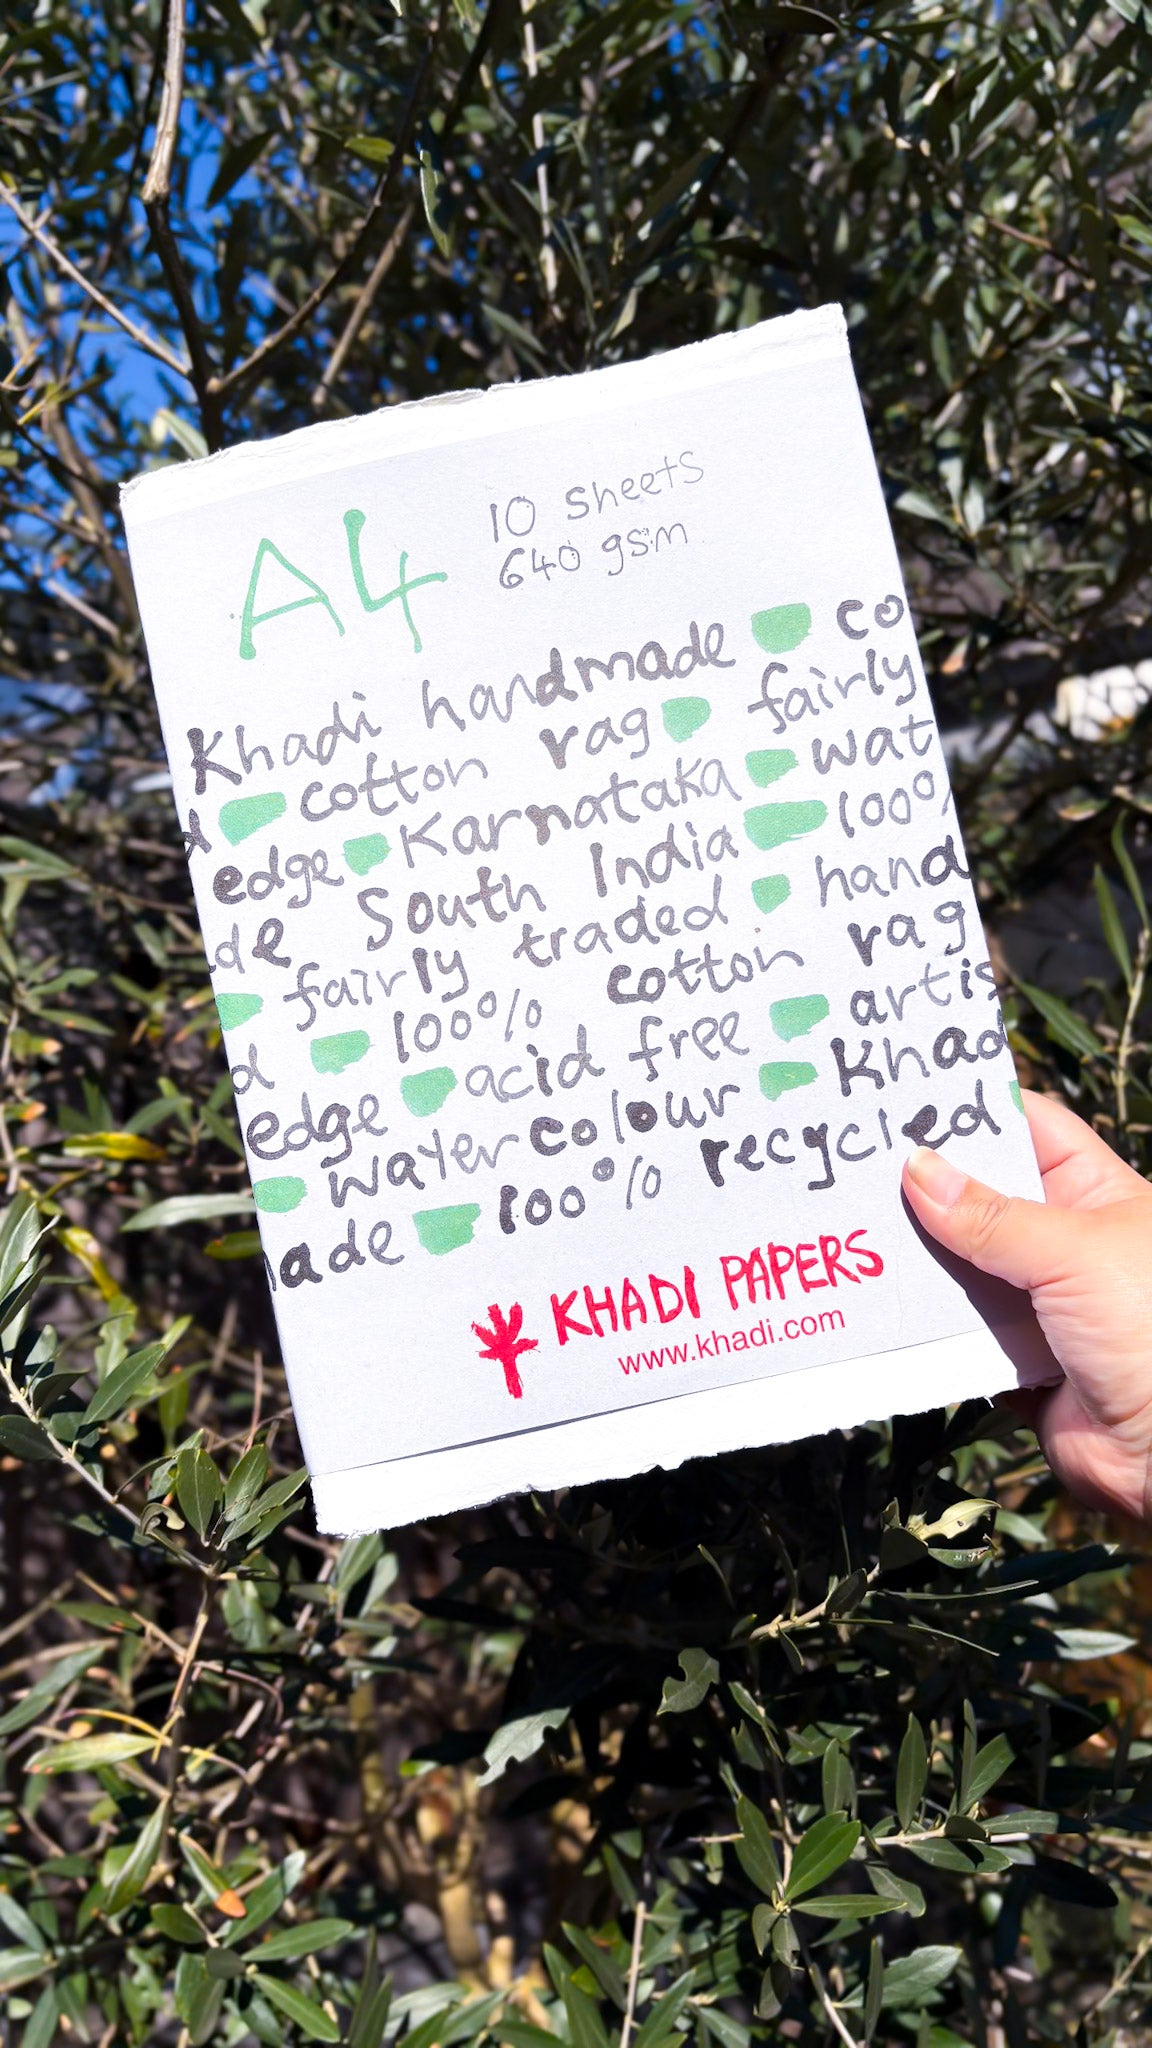 A4
10 sheets
640 gsm
Khadi handmade co
d cotton rag fairly
edge Karnataka wat
de South India 100%
fairly traded hand
d 100% cotton rag
edge acid free artis
watercolour Khad
ade 100% recycled
KHADI PAPERS
www.khadi.com